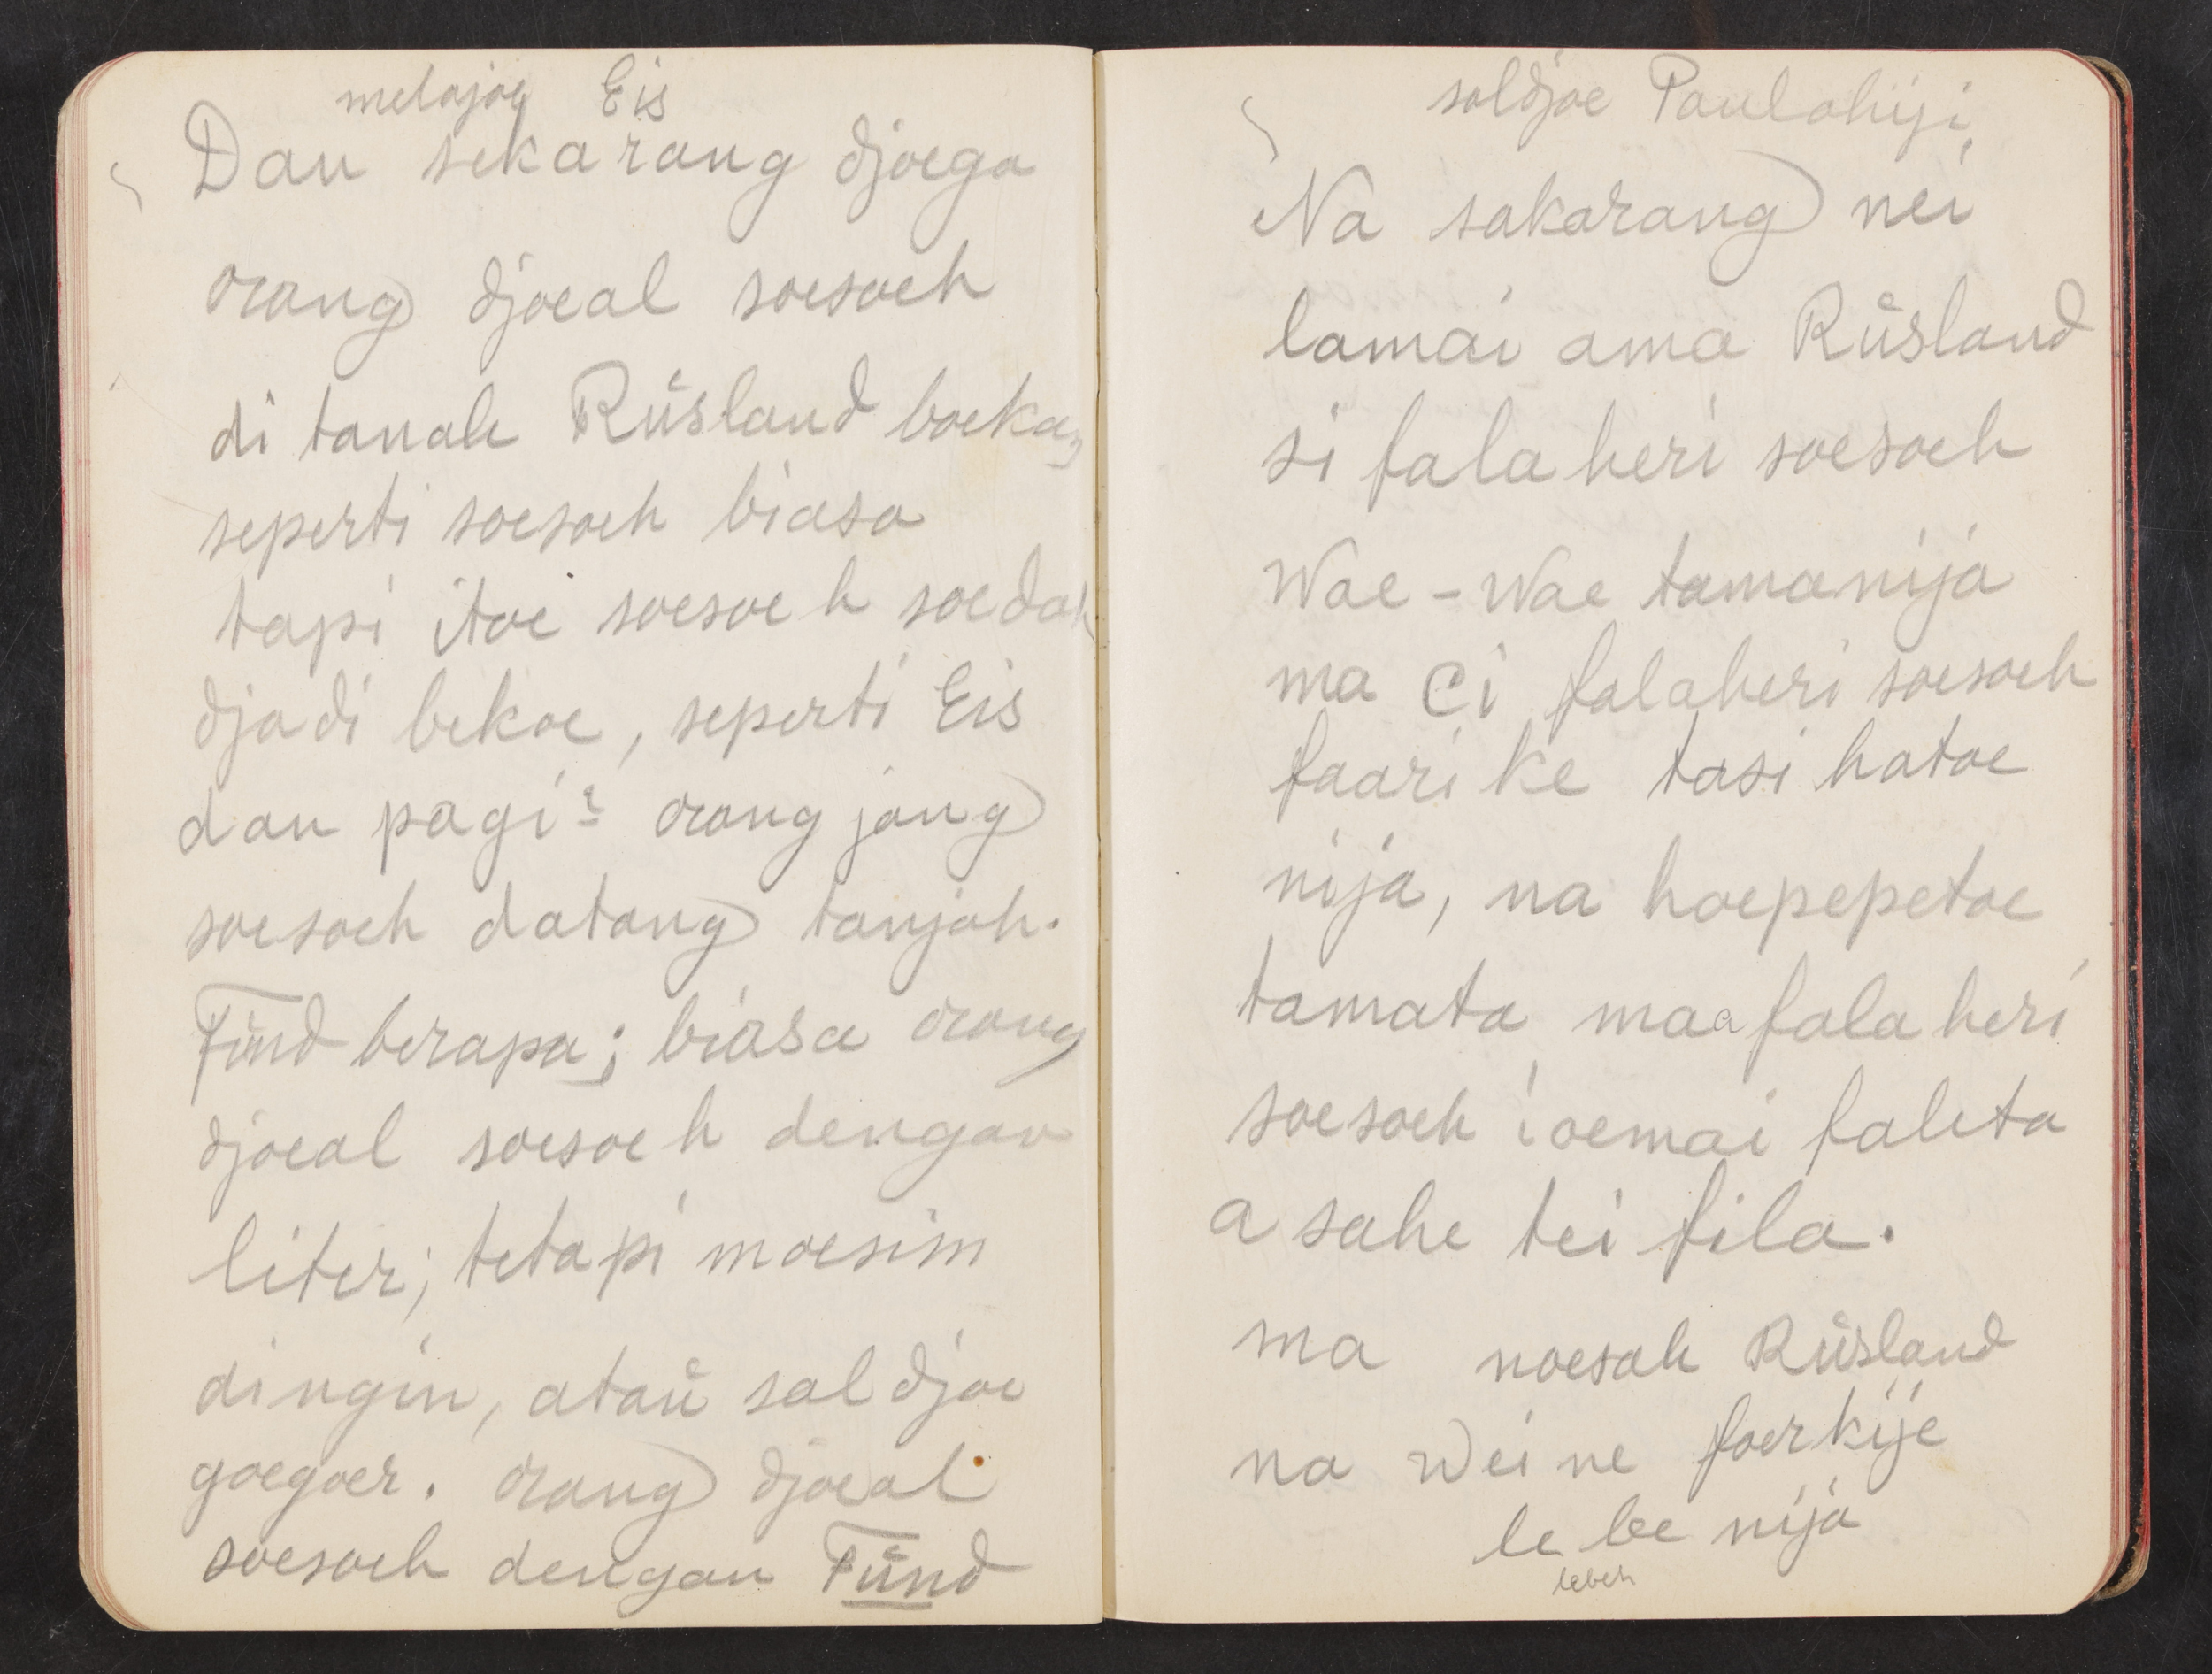 melajoe Eis
Dan sekarang djoega
orang djoeal soesoeh
di tanah Rŭsland boekan
seperti soesoeh biasa
tapi itoe soesoeh soedah
djadi bekoe, seperti Eis
dan pagi² orang jang
soesoeh datang tanjah.
Fŭnd berapa; biasa orang
djoeal soesoeh dengan
liter; tetapi moesim
dingin, ataŭ saldjoe
goegoer. orang djoeal
soesoeh dengan Fŭnd
saldjoe Paulohiji
Na sakarang nei
lamai ama Rŭsland
si falaheri soesoeh
Wae-Wae tamanija
ma ei falaheri soesoeh
faari ke tasi hatoe
nija, na hoepepetoe
tamata maa falaheri
soesoeh ioemai faleta
a sahe tei fila.
ma noesah Rŭsland
na weine foerkije
le be nija
lebeh